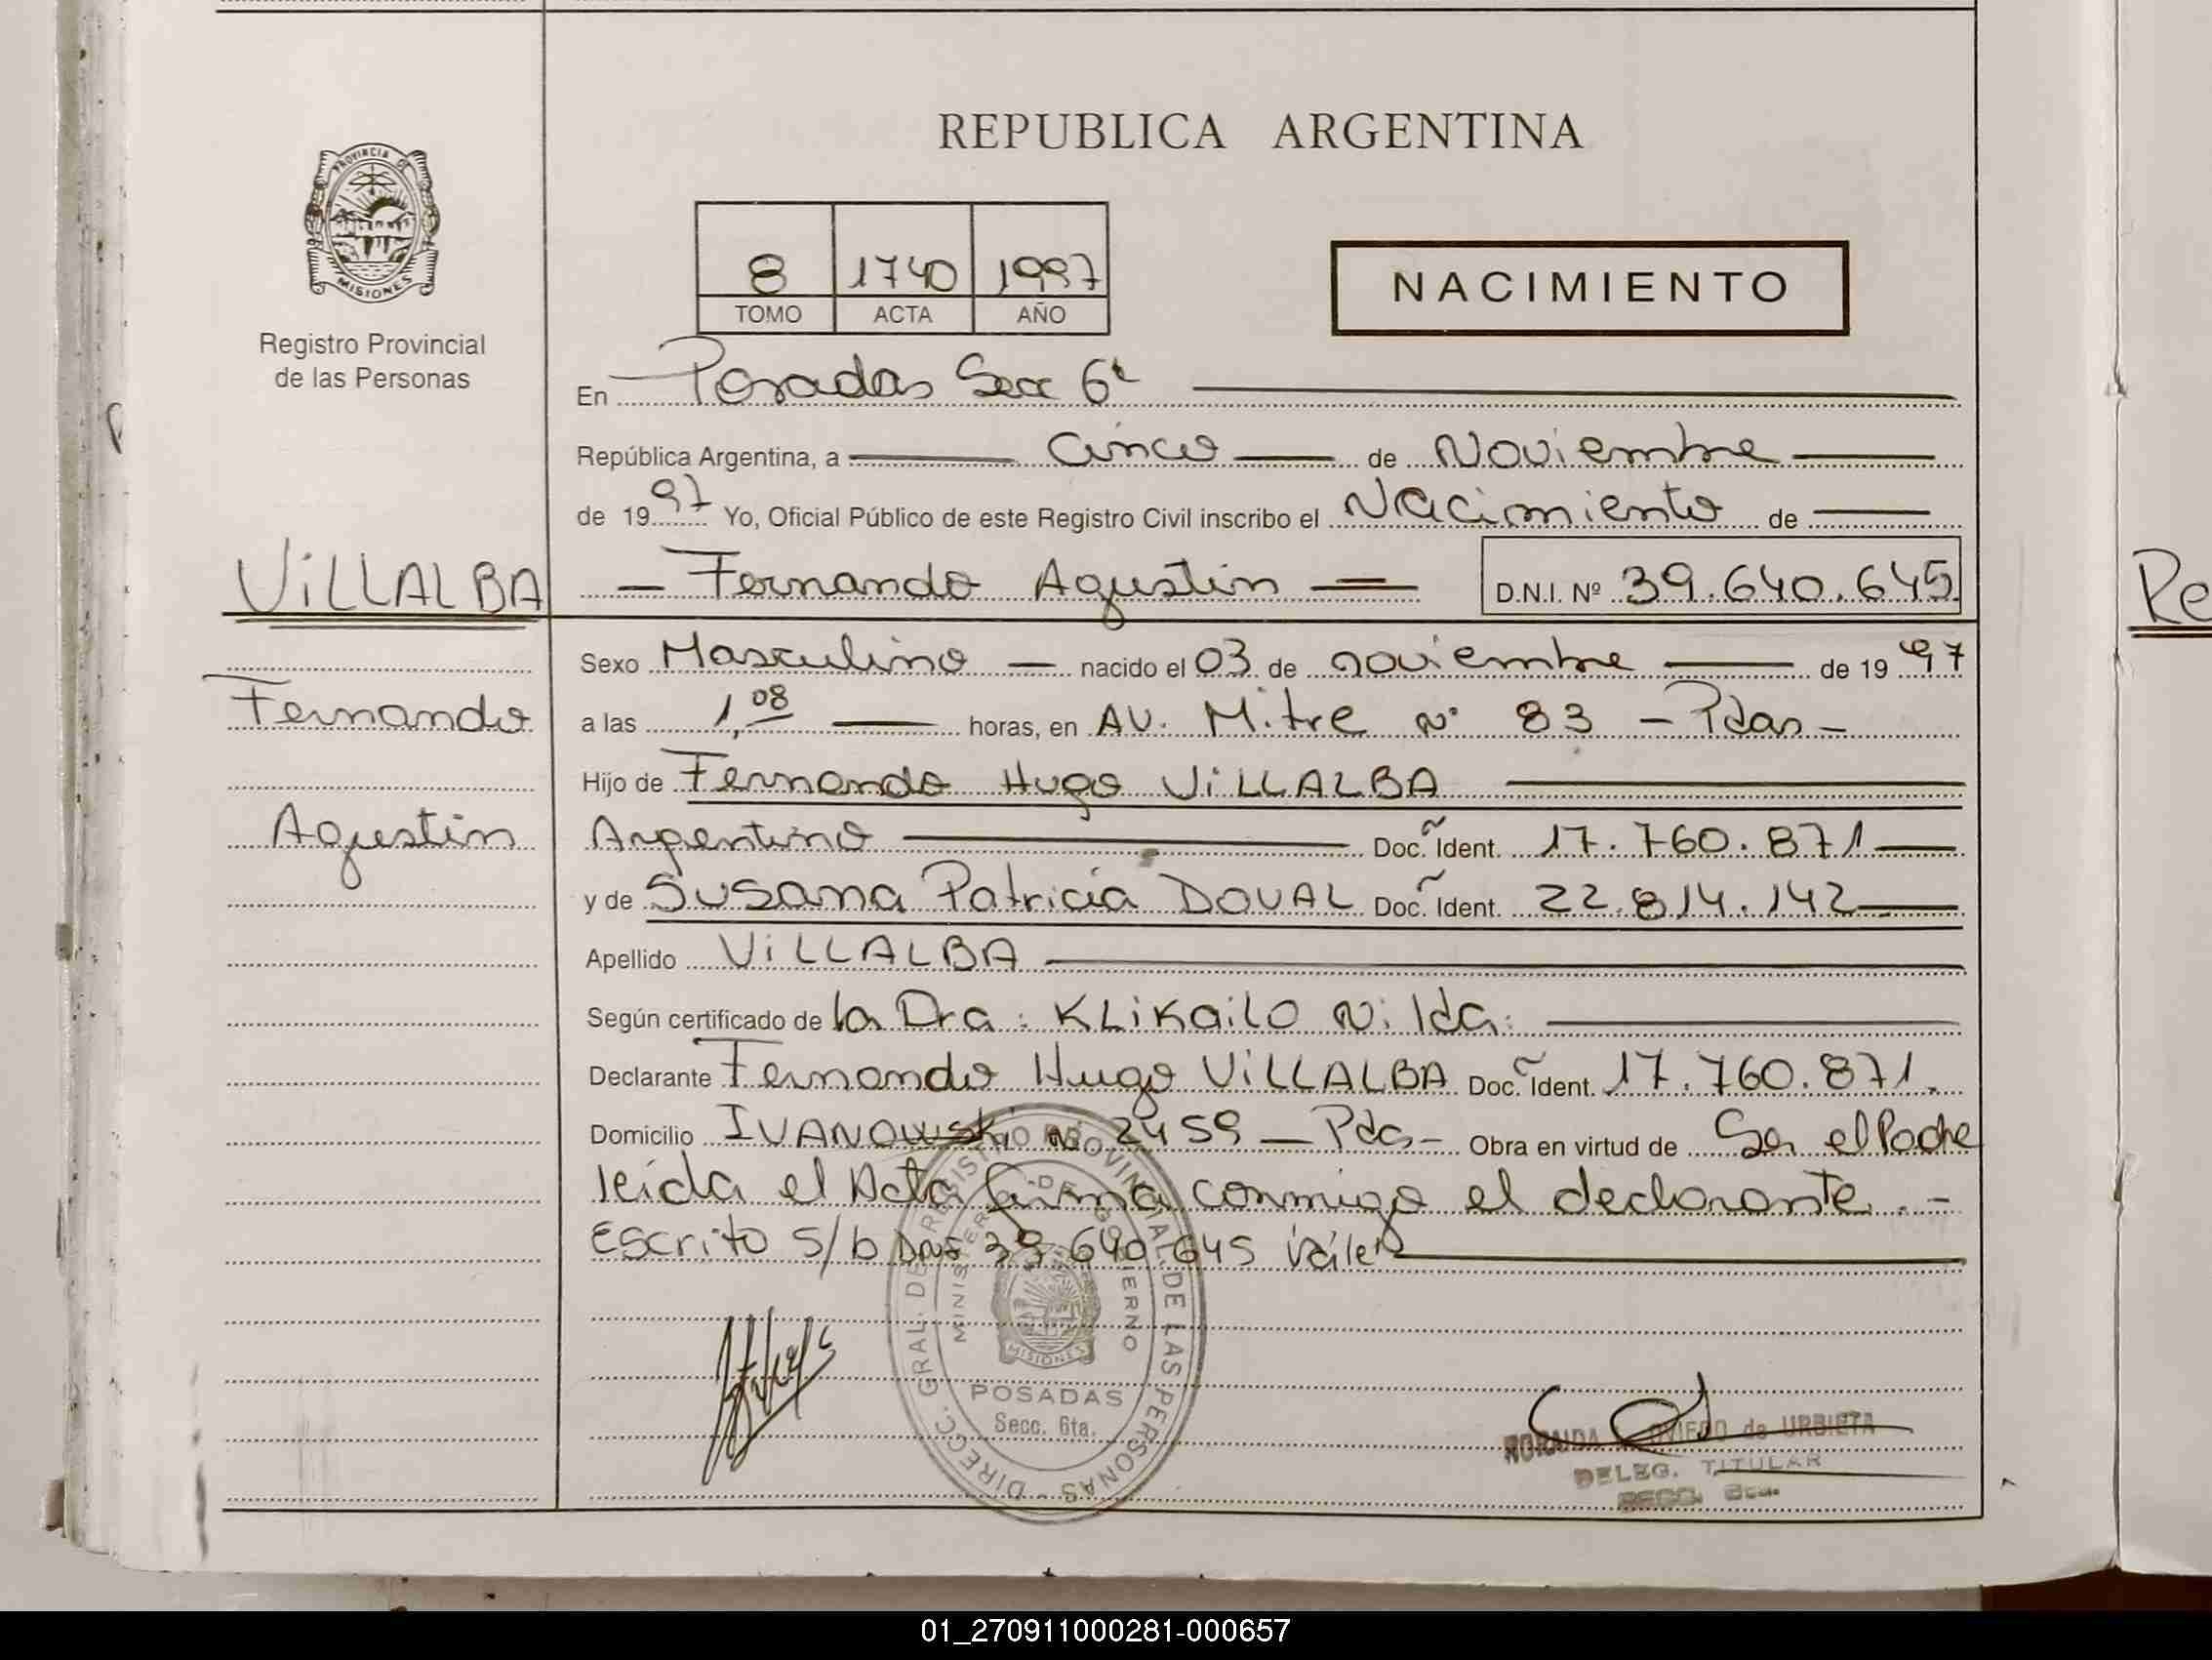 REPUBLICA ARGENTINA
PROVINCIA DE
MISIONES
Registro Provincial
de las Personas
8 1740 1997
TOMO ACTA AÑO
NACIMIENTO
En Posadas Secc 6ª
República Argentina, a Cinco de Noviembre
de 1997 Yo, Oficial Público de este Registro Civil inscribo el Nacimiento de
VILLALBA
Fernando Agustin D.N.I. Nº 39.640.645
Sexo Masculino nacido el 03 de noviembre de 1997
Fernando
a las 1,08 horas, en AV. Mitre Nº 83 - Pdas -
Hijo de Fernando Hugo VILLALBA
Agustin
Argentino Doc. Ident. 17.760.871
y de Susana Patricia DOVAL Doc. Ident. 22.814.142
Apellido VILLALBA
Según certificado de la Dra: KLIKAILO Nilda.
Declarante Fernando Hugo VILLALBA Doc. Ident. 17.760.871.
Domicilio IVANOWski Nº 2459 - Pdas - Obra en virtud de Ser el Padre
leída el Acta firma conmigo el declarante. -
Escrito s/b DNI 39 640 645 Vale
DIRECC. GRAL. DE REGISTRO PROVINCIAL DE LAS PERSONAS
MINISTERIO DE GOBIERNO
MISIONES
POSADAS
Secc. 6ta.
OVIEDO de URBIETA
DELEG. TITULAR
SECC. 6ta.
Re
01_270911000281-000657